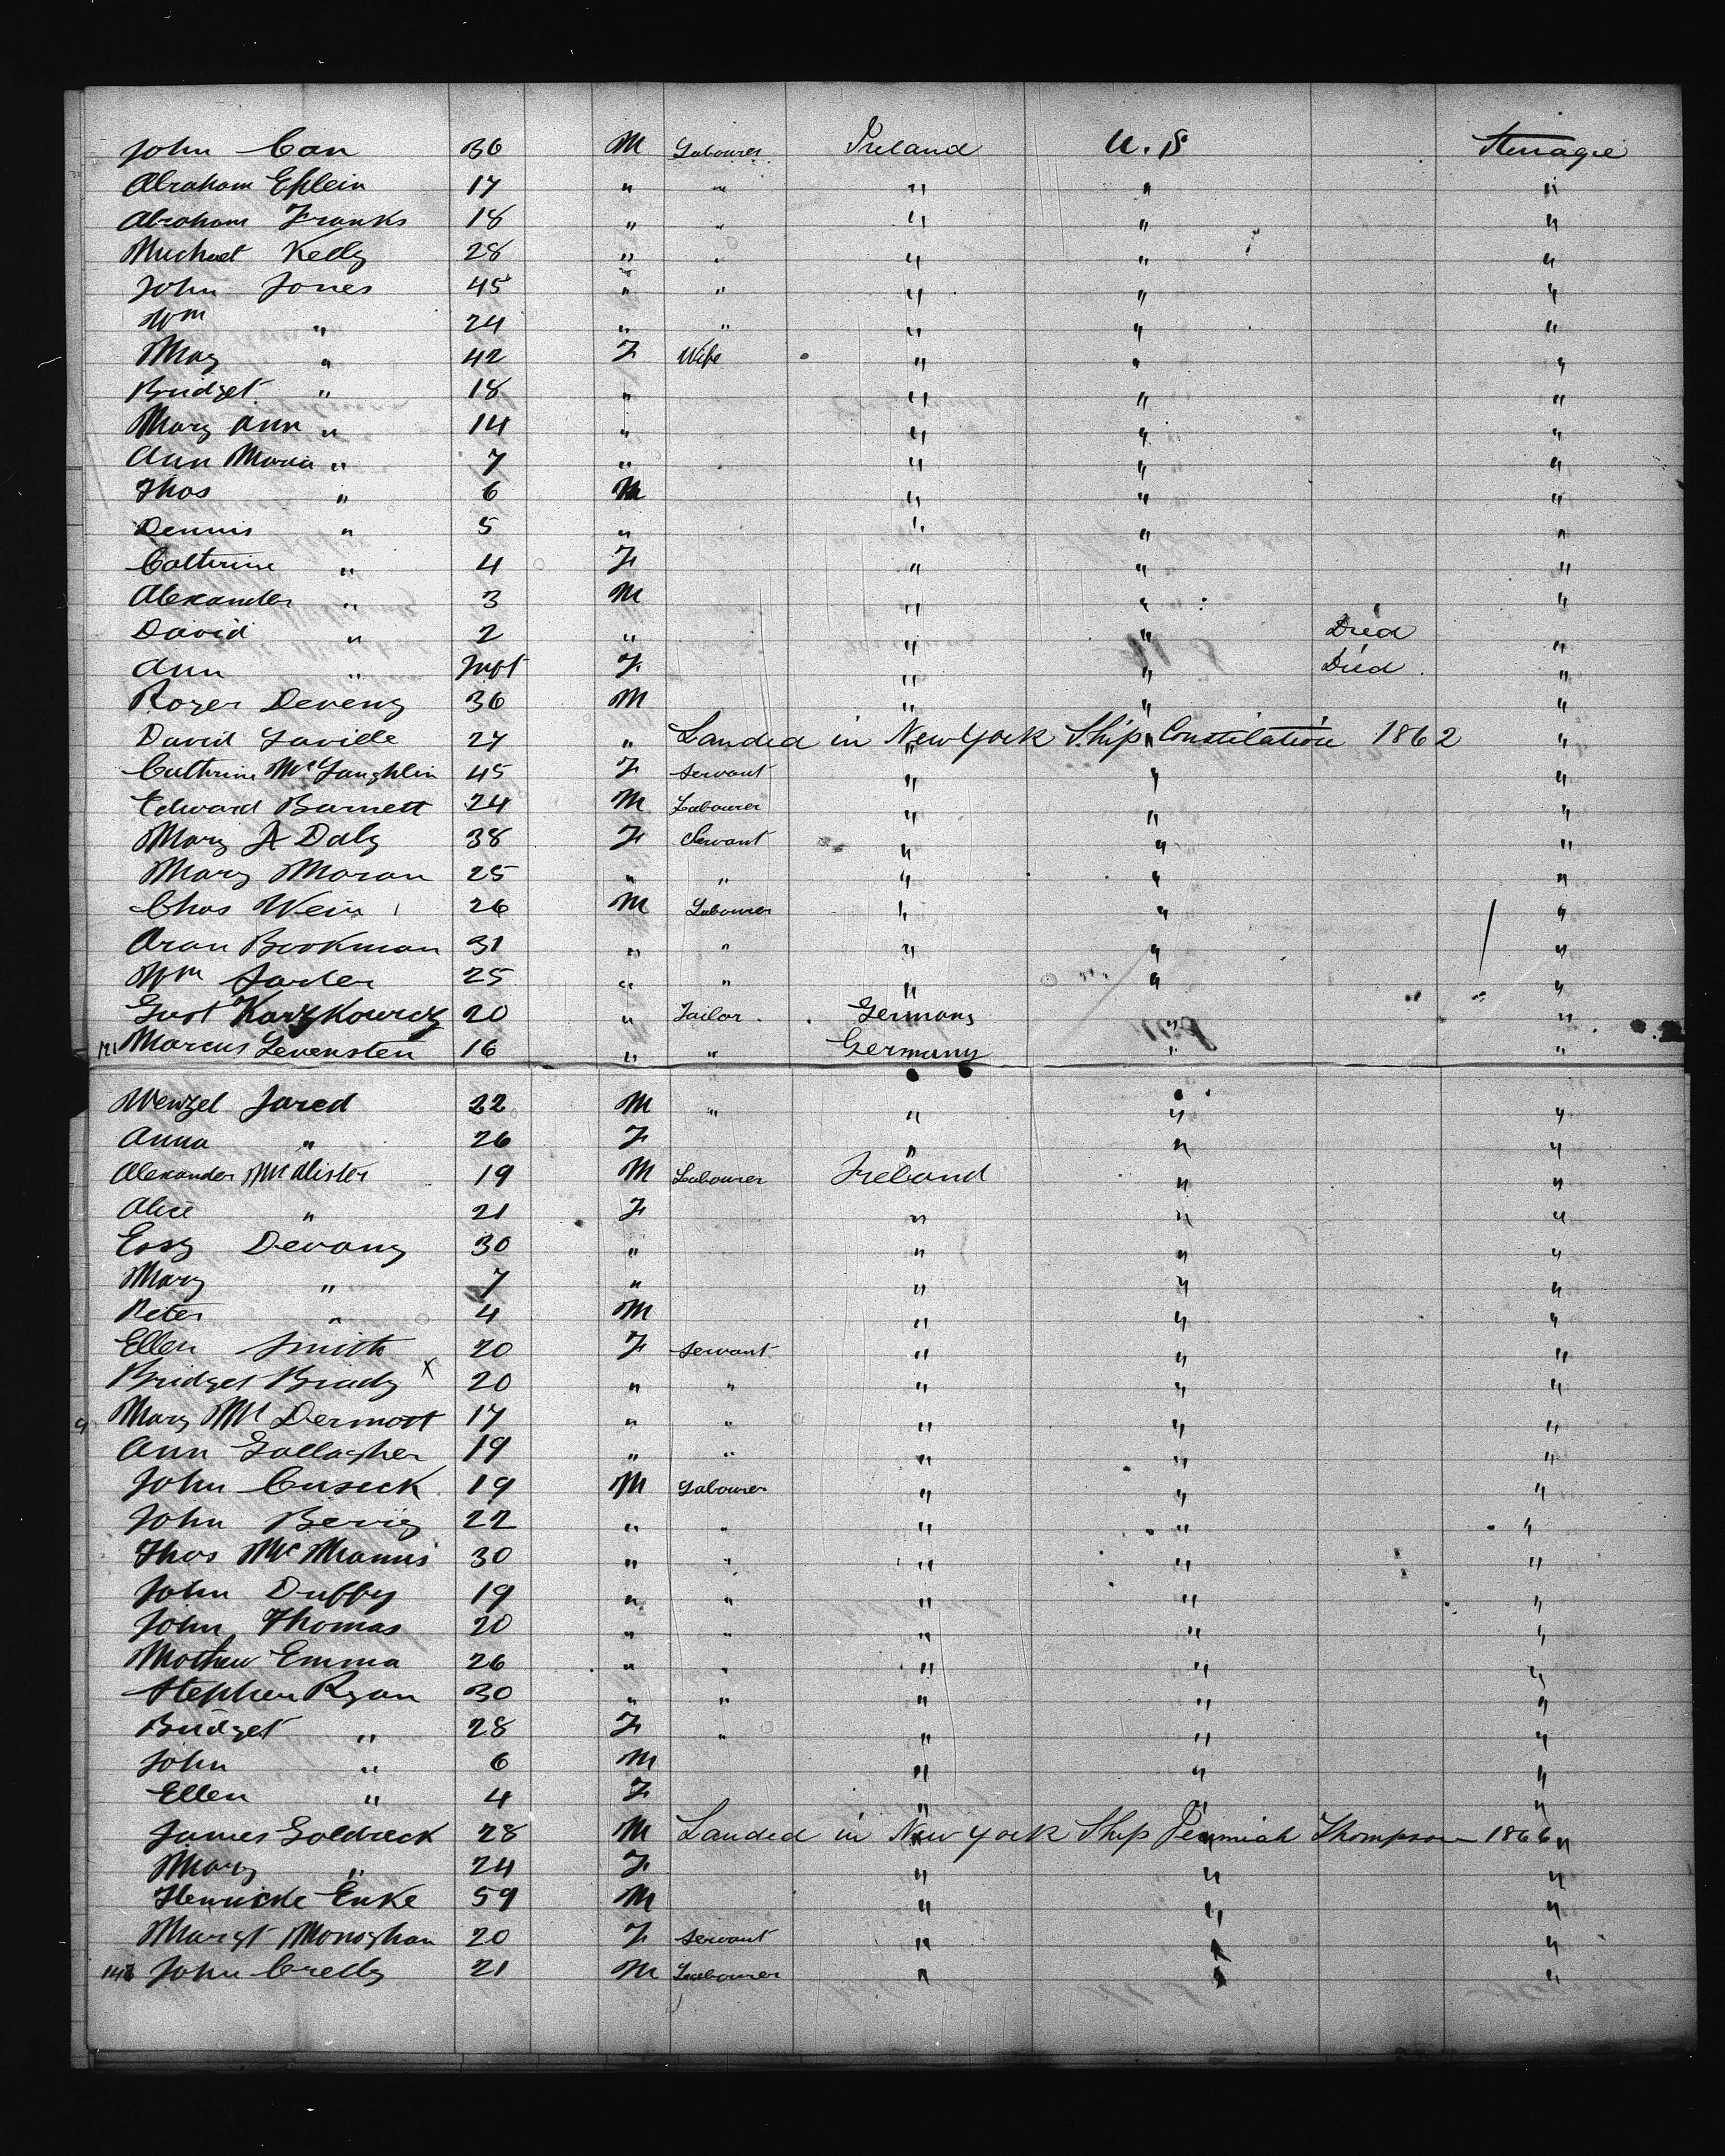 John Can 36 M Labourer Ireland U.S Sterrage
Abraham Eplein 17 " " " " "
Abraham Franks 18 " " " " "
Michael Kelly 28 " " " " "
John Jones 45 " " " " "
Wm " 24 " " " " "
Mary " 42 F Wife " " "
Bridget " 18 " " " "
Mary Ann " 14 " " " "
Ann Maria " 7 " " " "
Thos " 6 M " " "
Dennis " 5 " " " "
Catherine " 4 F " " "
Alexander " 3 M " " "
David " 2 " " " Died "
Ann " Inft F " " Died "
Roger Deveny 36 M " " "
David Saville 27 " Landed in New York Ship Constilation 1862 "
Cathrine McLaughlin 45 F Servant " " "
Edward Barnett 24 M Labourer " " "
Mary A Daly 38 F Servant " " "
Mary Moran 25 " " " " "
Chas Wein 26 M Labourer " " "
Aron Bookman 31 " " " " "
Wm 25 " " " " "
Gust 20 " Tailor Germany " "
121 Marcus Levensten 16 " " Germany " "
Wenzel Jared 22 M " " " "
Anna " 26 F " " "
Alexander McAlister 19 M Labourer Ireland " "
Alice " 21 F " " "
Essy Devany 30 " " " "
Mary " 7 " " " "
Peter " 4 M " " "
Ellen Smith 20 F Servant " " "
Bridget Brady X 20 " " " " "
Mary McDermott 17 " " " " "
Ann Gallagher 19 " " " " "
John Cusick 19 M Labourer " " "
John 22 " " " " "
Thos McManus 30 " " " " "
John Duffy 19 " " " " "
John Thomas 20 " " " " "
Mathew Emma 26 " " " " "
Stephen Ryan 30 " " " " "
Bridget " 28 F " " " "
John " 6 M " " "
Ellen " 4 F " " "
James Goldrick 28 M Landed in New York Ship Jeremiah Thompson 1866 "
Mary " 24 F " " "
Henricke Enke 59 M " " "
Margt Monaghan 20 F Servant " " "
John Crelly 21 M Labourer " " "